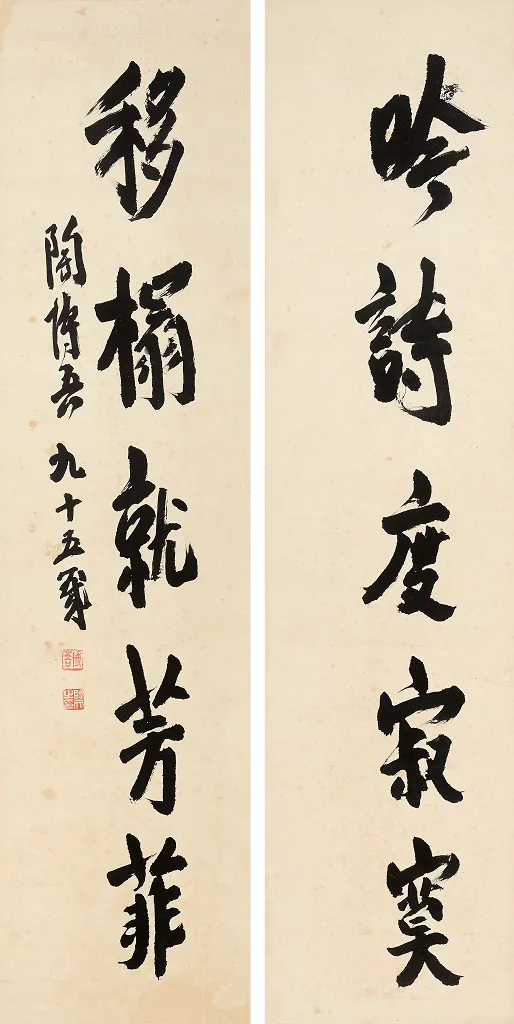 吟詩度寂寞
移榻就芳菲
陶博吾九十五歲